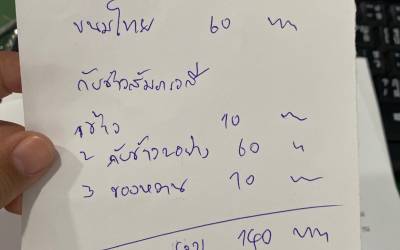 ขนมไทย 60 บาท
กับข้าวสัมภเวสี
1 ข้าว 10 บาท
2 กับข้าว 2 อย่าง 60 "
3 ของหวาน 10 บาท
รวม 140 บาท